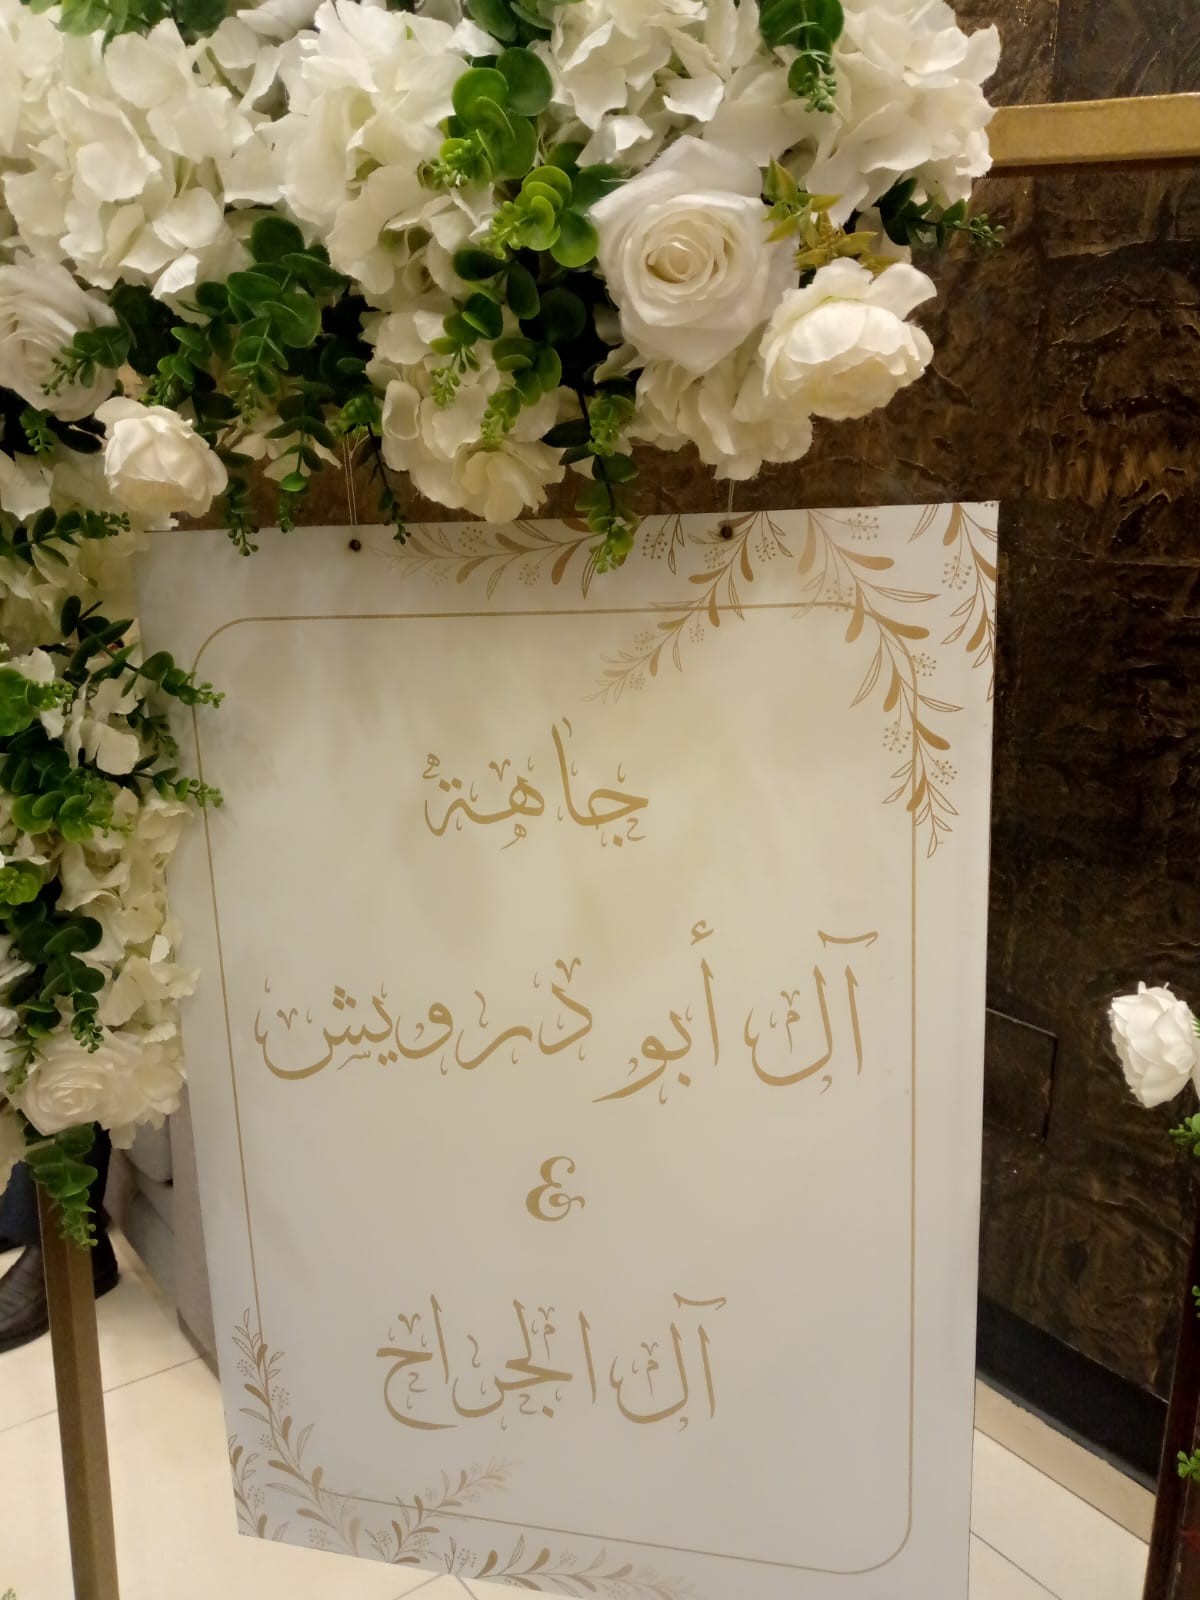 جاهة
آل أبو درويش
&
آل الجراح